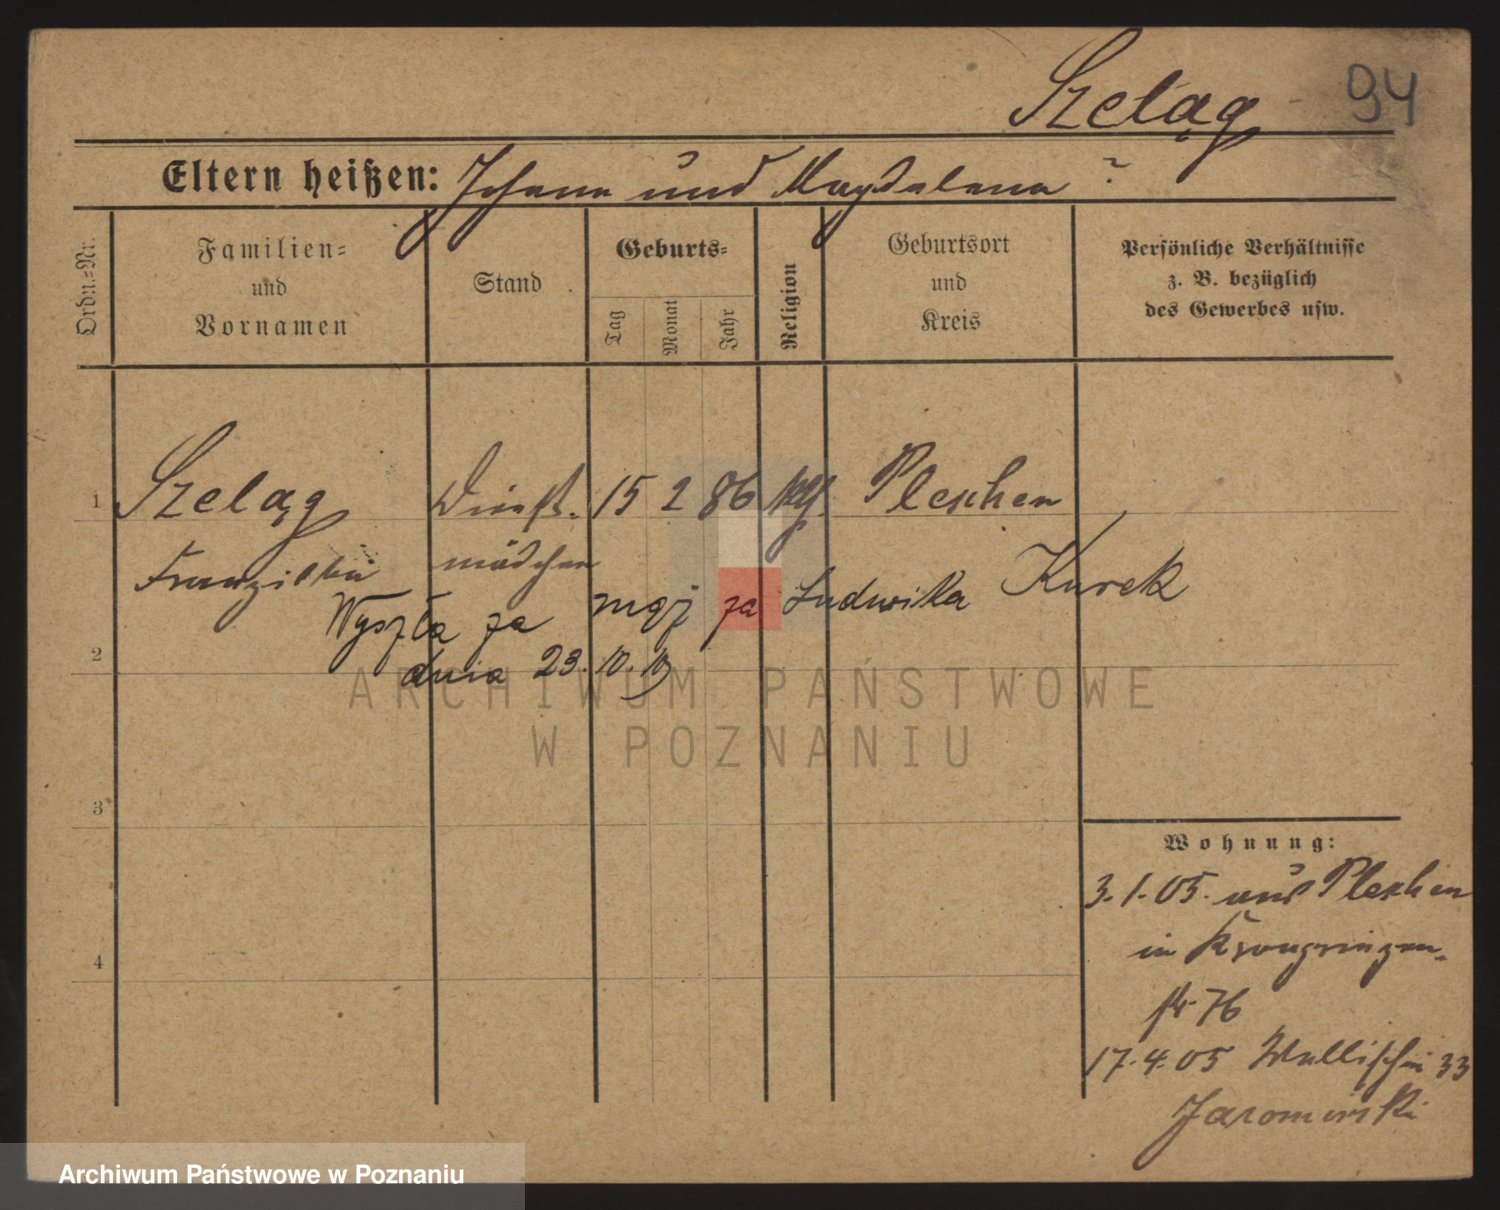 Szeląg 94
Eltern heißen: Johann und Magdalena ?
Ordn.=Nr.
Familien=
und
Vornamen
Stand
Geburts=
Tag
Monat
Jahr
Religion
Geburtsort
und
Kreis
Persönliche Verhältnisse
z. B. bezüglich
des Gewerbes usw.
1 Szeląg Dienst- 15 2 86 kth. Pleschen
Franziska mädchen
Wyszła za mąż za Ludwika Kurek
2
dnia 23.10.19
3
4
Wohnung:
3.1.05. aus Pleschen
in Kronprinzen-
str. 76
17.4.05 Wallischei 33
Jaromirski
ARCHIWUM PAŃSTWOWE
W POZNANIU
Archiwum Państwowe w Poznaniu